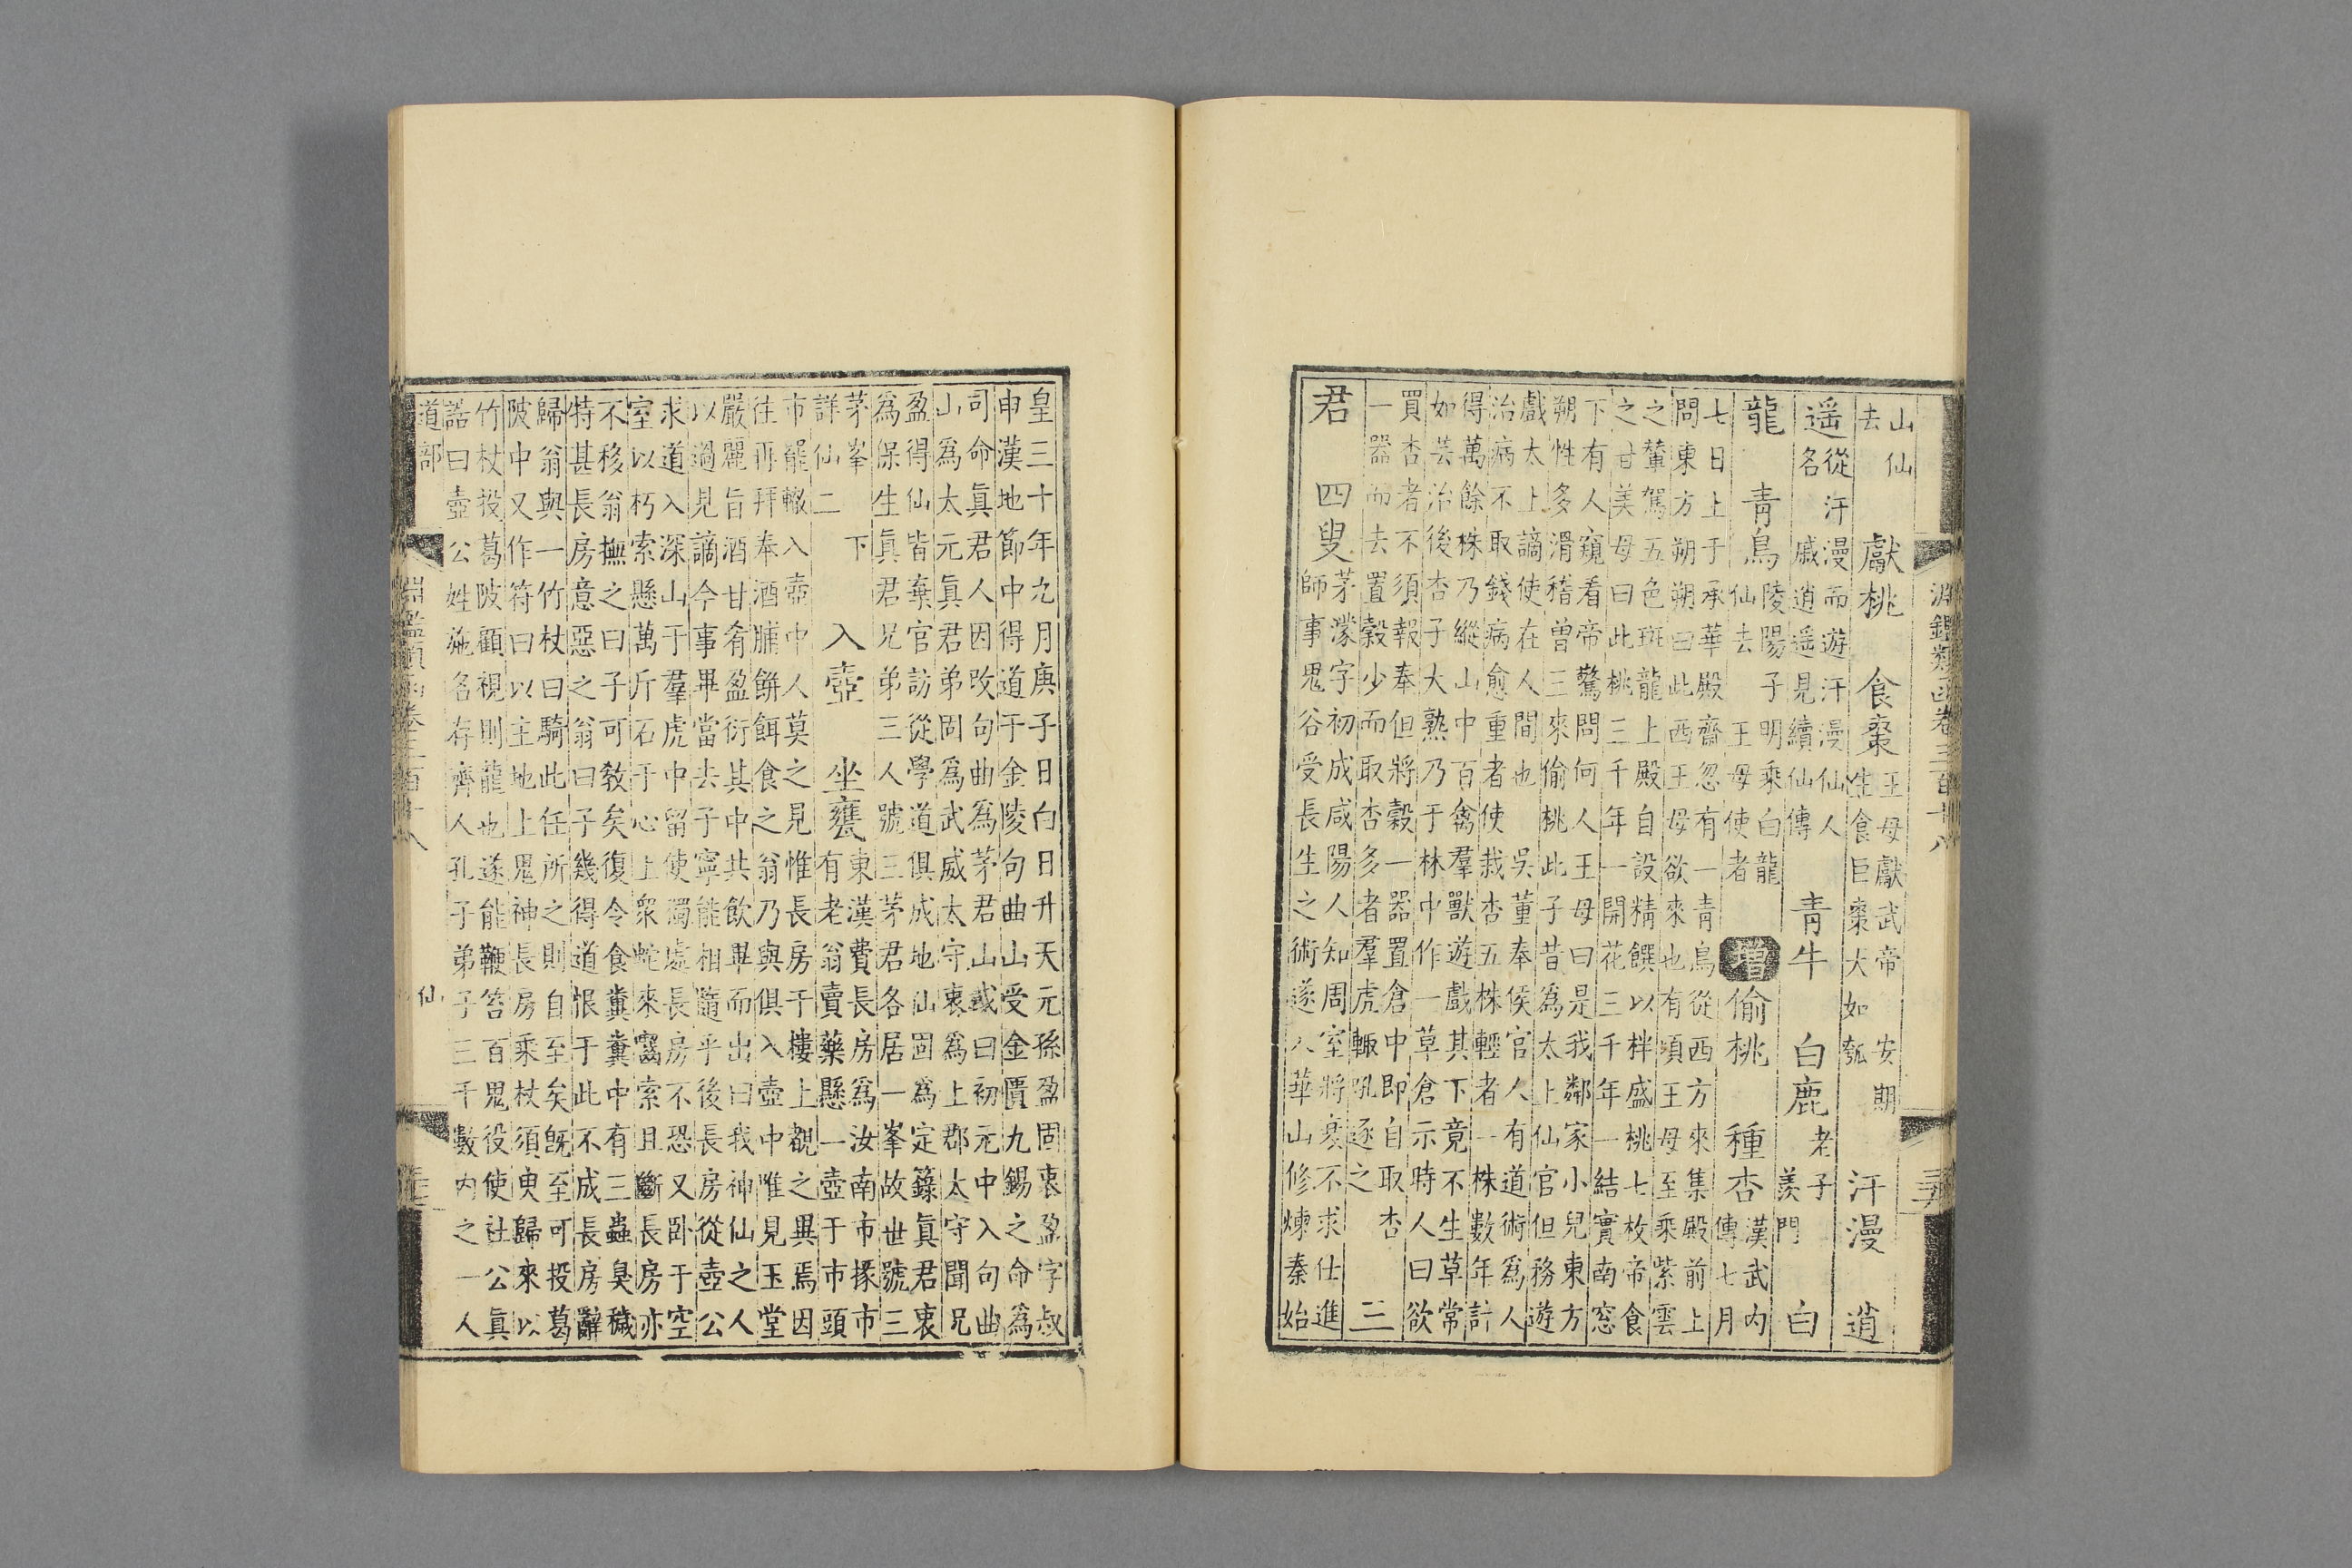 淵鑑類函卷三百十八 三
山仙去 獻桃 食棗 王母獻武帝 安期生食巨棗大如瓠 汗漫 逍
遥 從汗漫而遊汗漫仙人名 戚逍遥見續仙傳 青牛 白鹿 老子 羨門 白
龍 青鳥 陵陽子明乘白龍仙去 王母使者 增 偷桃 種杏 漢武內傳七月
七日上于承華殿齋忽有一青鳥從西方來集殿前上
問東方朔朔曰此西王母欲來也有頃王母至乘紫雲
之輦駕五色斑龍上殿自設精饌以柈盛桃七枚帝食
之甘美母曰此桃三千年一開花三千年一結實南窓
下有人窺看帝驚問何人王母曰是我鄰家小兒東方
朔性多滑稽曾三來偷桃此子昔爲太上仙官但務遊
戲太上謫使在人間也 吳董奉侯官人有道術爲人
治病不取錢病愈重者使栽杏五株輕者一株數年計
得萬餘株乃縱山中百禽羣獸遊戲其下竟不生草常
如芸治後杏子大熟乃于林中作一草倉示時人曰欲
買杏者不須報奉但將穀一器置倉中即自取杏
一器而去置穀少而取杏多者羣虎輙吼逐之 三
君 四叟 茅濛字初成咸陽人知周室將衰不求仕進
師事鬼谷受長生之術遂入華山修煉秦始
皇三十年九月庚子日白日升天元孫盈固衷盈字叔
申漢地節中得道于金陵句曲山受金匱九錫之命爲
司命眞君人因改句曲爲茅君山或曰初元中入句曲
山爲太元眞君弟固爲武威太守衷爲上郡太守聞兄
盈得仙皆棄官訪從學道俱成地仙固爲定籙眞君衷
爲保生眞君兄弟三人號三茅君各居一峯故世號三
茅峯 下
詳仙二 入壺 坐甕 東漢費長房爲汝南市掾市
有老翁賣藥懸一壺于市頭
市罷輙入壺中人莫之見惟長房于樓上覩之異焉因
往再拜奉酒脯餅餌食之翁乃與俱入壺中唯見玉堂
嚴麗旨酒甘肴盈衍其中共飲畢而出曰我神仙之人
以過見謫今事畢當去子寧能相隨乎後長房從壺公
求道入深山于羣虎中留使獨處長房不恐又卧于空
室以朽索懸萬斤石于心上衆蛇來齧索且斷長房亦
不移翁撫之曰子可教矣復令食糞糞中有三蟲臭穢
特甚長房意惡之翁曰子幾得道恨于此不成長房辭
歸翁與一竹杖曰騎此任所之則自至矣旣至可投葛
陂中又作符曰以主地上鬼神長房乘杖須臾歸來以
竹杖投葛陂顧視則龍也遂能鞭笞百鬼役使社公眞
誥曰壺公姓施名存齊人孔子弟子三千數內之一人
道部 仙
淵鑑類函卷三百十八